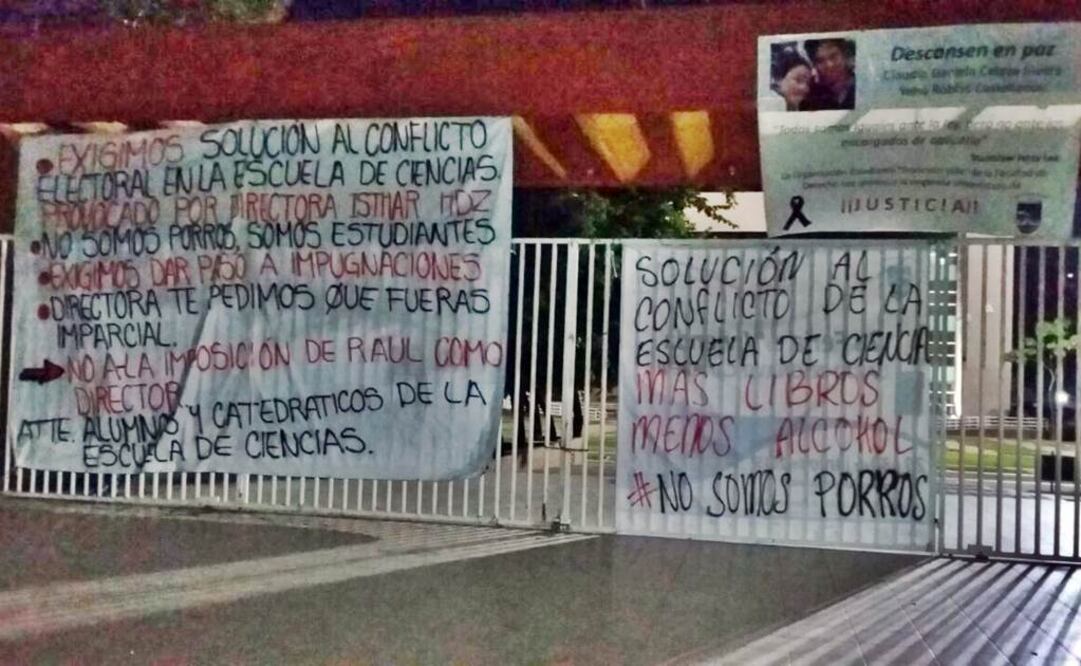 EXIGIMOS SOLUCIÓN AL CONFLICTO
ELECTORAL EN LA ESCUELA DE CIENCIAS.
PROVOCADO POR DIRECTORA ISTHAR HDZ
NO SOMOS PORROS, SOMOS ESTUDIANTES
EXIGIMOS DAR PASO A IMPUGNACIONES
DIRECTORA TE PEDIMOS QUE FUERAS
IMPARCIAL.
NO A LA IMPOSICIÓN DE RAUL COMO
DIRECTOR
ATTE. ALUMNOS Y CATEDRATICOS DE LA
ESCUELA DE CIENCIAS.
SOLUCIÓN AL
CONFLICTO DE LA
ESCUELA DE CIENCIA
MAS LIBROS
MENOS ALCOHOL
#NO SOMOS PORROS
Descansen en paz
Claudia Daniela
Robles
"Todos somos iguales ante la ley, pero no ante los
encargados de aplicarla"
la Facultad de
Derecho
¡¡¡JUSTICIA!!!